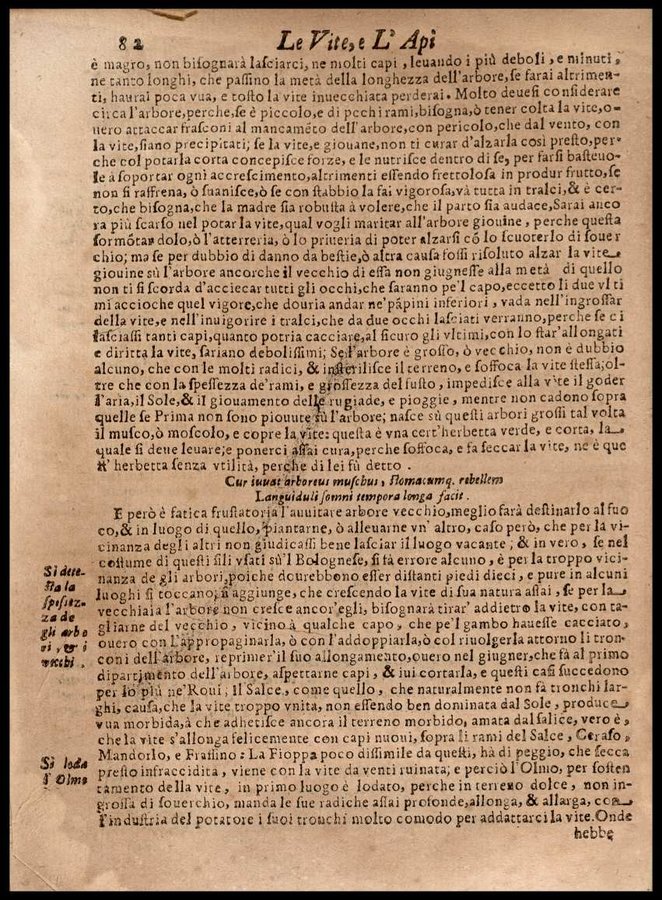 82 Le Vite, e L' Api
è magro, non bisognarà lasciarci, ne molti capi, leuando i più deboli, e minuti,
ne tanto longhi, che passino la metà della longhezza dell'arbore, se farai altrimen-
ti, haurai poca vua, e tosto la vite inuecchiata perderai. Molto deuesi considerare
circa l'arbore, perche, se è piccolo, e di pochi rami, bisogna, ò tener colta la vite, o-
uero attaccar frasconi al mancamēto dell'arbore, con pericolo, che dal vento, con
la vite, siano precipitati; se la vite, e giouane, non ti curar d'alzarla così presto, per-
che col potarla corta concepisce forze, e le nutrisce dentro di se, per farsi basteuo-
le à soportar ogni accrescimento, altrimenti essendo frettolosa in produr frutto, se
non si raffrena, ò suanisce, ò se con stabbio la fai vigorosa, và tutta in tralci, & è cer-
to, che bisogna, che la madre sia robusta à volere, che il parto sia audace, Sarai anco
ra più scarso nel potar la vite, qual vogli maritar all'arbore giouine, perche questa
sormōtandolo, ò l'atterreria, ò lo priueria di poter alzarsi cō lo scuoterlo di souer
chio; ma se per dubbio di danno da bestie, ò altra causa fossi risoluto alzar la vite
giouine sù l'arbore ancorche il vecchio di essa non giugnesse alla metà di quello
non ti si scorda d'acciecar tutti gli occhi, che saranno pe'l capo, eccetto li due vlti
mi accioche quel vigore, che douria andar ne'pāpini inferiori, vada nell'ingrossar
della vite, e nell'inuigorire i tralci, che da due occhi lasciati verranno, perche se ci
lasciassi tanti capi, quanto potria cacciare, al sicuro gli vltimi, con lo star'allongati
e diritta la vite, sariano debolissimi; Se l'arbore è grosso, ò vecchio, non è dubbio
alcuno, che con le molti radici, & insterilisce il terreno, e soffoca la vite stessa, ol-
tre che con la spessezza de'rami, e grossezza del fusto, impedisce alla vite il goder
l'aria, il Sole, & il giouamento delle rugiade, e pioggie, mentre non cadono sopra
quelle se Prima non sono piouute sù l'arbore; nasce sù questi arbori grossi tal volta
il musco, ò moscolo, e copre la vite: questa è vna cert'herbetta verde, e corta, la
quale si deue leuare; e ponerci assai cura, perche soffoca, e fa seccar la vite, ne è que
st' herbetta senza vtilità, perche di lei fù detto.
Cur iuuat arboreus muschus, stomacumq. rebellem
Languiduli somni tempora longa facit.
E però è fatica frustatoria l'auuitare arbore vecchio, meglio farà destinarlo al fuo
co, & in luogo di quello, piantarne, ò alleuarne vn' altro, caso però, che per la vi-
cinanza degli altri non giudicassi bene lasciar il luogo vacante; & in vero, se nel
costume di questi sili vsati sù'l Bolognese, si fà errore alcuno, è per la troppo vici-
nanza de gli arbori, poiche dourebbono esser distanti piedi dieci, e pure in alcuni
luoghi si toccano, si aggiunge, che crescendo la vite di sua natura assai, se per la
vecchiaia l'arbore non cresce ancor'egli, bisognarà tirar' addietro la vite, con ta-
gliarne del vecchio, vicino à qualche capo, che pe'l gambo hauesse cacciato,
ouero con l'appropaginarla, ò con l'addoppiarla, ò col riuolgerla attorno li tron-
coni dell'arbore, reprimer'il suo allongamento, ouero nel giugner, che fà al primo
dipartimento dell'arbore, aspettarne capi, & iui cortarla, e questi casi succedono
per lo più ne'Roui; Il Salce, come quello, che naturalmente non fà tronchi lar-
ghi, causa, che la vite troppo vnita, non essendo ben dominata dal Sole, produce
vua morbida, à che adherisce ancora il terreno morbido, amata dal salice, vero è,
che la vite s'allonga felicemente con capi nuoui, sopra li rami del Salce, Ceraso,
Mandorlo, e Frassino: La Fioppa poco dissimile da questi, hà di peggio, che secca
presto infraccidita, viene con la vite da venti ruinata; e perciò l'Olmo, per sosten
tamento della vite, in primo luogo è lodato, perche in terreno dolce, non in-
grossa di souerchio, manda le sue radiche assai profonde, allonga, & allarga, con
l'industria del potatore i suoi tronchi molto comodo per addattarci la vite. Onde
hebbe
Si dete-
sta la
spessez-
za de
gli arbo
ri, e i
vecchi.
Si loda
l'Olmo